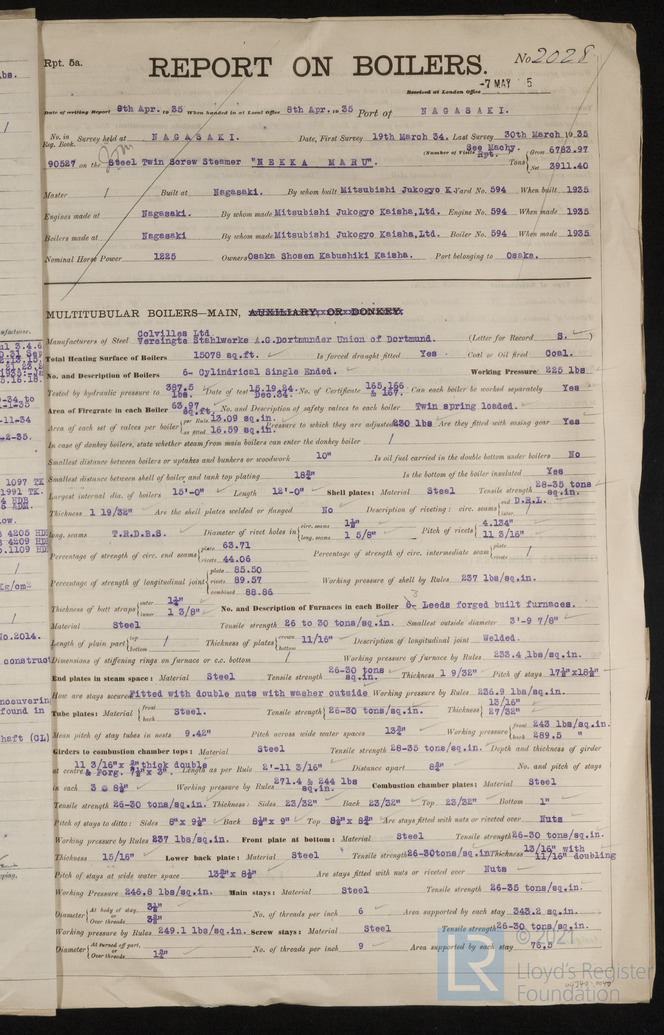 Rpt. 5a.
REPORT ON BOILERS.
No 2028
Received at London Office -7 MAY 5
Date of writing Report 8th Apr. 1935 When handed in at Local Office 8th Apr. 1935 Port of NAGASAKI.
No. in Reg. Book. Survey held at NAGASAKI. Date, First Survey 19th March 34. Last Survey 30th March 1935
(Number of Visits See Machy. Rpt.
90527 on the Steel Twin Screw Steamer "NEKKA MARU". Tons Gross 6783.97 Net 3911.40
Master / Built at Nagasaki. By whom built Mitsubishi Jukogyo K. Yard No. 594 When built 1935
Engines made at Nagasaki. By whom made Mitsubishi Jukogyo Kaisha,Ltd. Engine No. 594 When made 1935
Boilers made at Nagasaki By whom made Mitsubishi Jukogyo Kaisha,Ltd. Boiler No. 594 When made 1935
Nominal Horse Power 1225 Owners Osaka Shosen Kabushiki Kaisha. Port belonging to Osaka.
MULTITUBULAR BOILERS—MAIN, AUXILIARY OR DONKEY.
Manufacturers of Steel Colvilles Ltd. Vereingte Stahlwerke A.G.Dortmunder Union of Dortmund. (Letter for Record S. )
Total Heating Surface of Boilers 15078 sq.ft. Is forced draught fitted Yes Coal or Oil fired Coal.
No. and Description of Boilers 6- Cylindrical Single Ended. Working Pressure 225 lbs
Tested by hydraulic pressure to 387.5 lbs. Date of test 15.19.24. Dec.34. No. of Certificate 165,166 & 167. Can each boiler be worked separately Yes
Area of Firegrate in each Boiler 63.97 sq.ft. No. and Description of safety valves to each boiler Twin spring loaded.
Area of each set of valves per boiler per Rule 13.09 sq.in. as fitted 16.59 sq.in. Pressure to which they are adjusted 230 lbs Are they fitted with easing gear Yes
In case of donkey boilers, state whether steam from main boilers can enter the donkey boiler /
Smallest distance between boilers or uptakes and bunkers or woodwork 10" Is oil fuel carried in the double bottom under boilers No
Smallest distance between shell of boiler and tank top plating 18¾" Is the bottom of the boiler insulated Yes
Largest internal dia. of boilers 15'-0" Length 12'-0" Shell plates: Material Steel Tensile strength 28-35 tons sq.in.
Thickness 1 19/32" Are the shell plates welded or flanged No Description of riveting: circ. seams end D.R.L. inter. /
long. seams T.R.D.B.S. Diameter of rivet holes in circ. seams 1½" long. seams 1 5/8" Pitch of rivets 4.134" 11 3/16"
Percentage of strength of circ. end seams plate 63.71 rivets 44.06 Percentage of strength of circ. intermediate seam plate rivets /
Percentage of strength of longitudinal joint plate 85.50 rivets 89.57 combined 88.86 Working pressure of shell by Rules 237 lbs/sq.in.
Thickness of butt straps outer 1¼" inner 1 3/8" No. and Description of Furnaces in each Boiler 3 Leeds forged built furnaces.
Material Steel Tensile strength 26 to 30 tons/sq.in. Smallest outside diameter 3'-9 7/8"
Length of plain part top bottom / Thickness of plates crown bottom 11/16" Description of longitudinal joint Welded.
Dimensions of stiffening rings on furnace or c.c. bottom / Working pressure of furnace by Rules 233.4 lbs/sq.in.
End plates in steam space: Material Steel Tensile strength 26-30 tons sq.in. Thickness 1 9/32" Pitch of stays 17½"x18½"
How are stays secured Fitted with double nuts with washer outside Working pressure by Rules 236.9 lbs/sq.in.
Tube plates: Material front back Steel. Tensile strength 26-30 tons/sq.in. Thickness 13/16" 27/32"
Mean pitch of stay tubes in nests 9.42" Pitch across wide water spaces 13¾" Working pressure front 243 lbs/sq.in. back 289.5 "
Girders to combustion chamber tops: Material Steel Tensile strength 28-35 tons/sq.in. Depth and thickness of girder
at centre 11 3/16" x ¾" thick double & Forg. 7½"x 3". Length as per Rule 2'-11 3/16" Distance apart 8¾" No. and pitch of stays
in each 3 @ 8½" Working pressure by Rules 271.4 & 244 lbs sq.in. Combustion chamber plates: Material Steel
Tensile strength 26-30 tons/sq.in. Thickness: Sides 23/32" Back 23/32" Top 23/32" Bottom 1"
Pitch of stays to ditto: Sides 8"x 9½" Back 8½"x 9" Top 8½"x 8¾" Are stays fitted with nuts or riveted over Nuts
Working pressure by Rules 237 lbs/sq.in. Front plate at bottom: Material Steel Tensile strength 26-30 tons/sq.in.
Thickness 15/16" Lower back plate: Material Steel Tensile strength 26-30tons/sq.in Thickness 13/16" with 11/16" doubling
Pitch of stays at wide water space 13¾"x 8½" Are stays fitted with nuts or riveted over Nuts
Working Pressure 246.8 lbs/sq.in. Main stays: Material Steel Tensile strength 26-35 tons/sq.in.
Diameter At body of stay, or Over threads 3½" 3¾" No. of threads per inch 6 Area supported by each stay 343.2 sq.in.
Working pressure by Rules 249.1 lbs/sq.in. Screw stays: Material Steel Tensile strength 26-30 tons/sq.in.
Diameter At turned off part, or Over threads 1¾" No. of threads per inch 9 Area supported by each stay 76.5
© 2021
LR
Lloyd's Register
Foundation